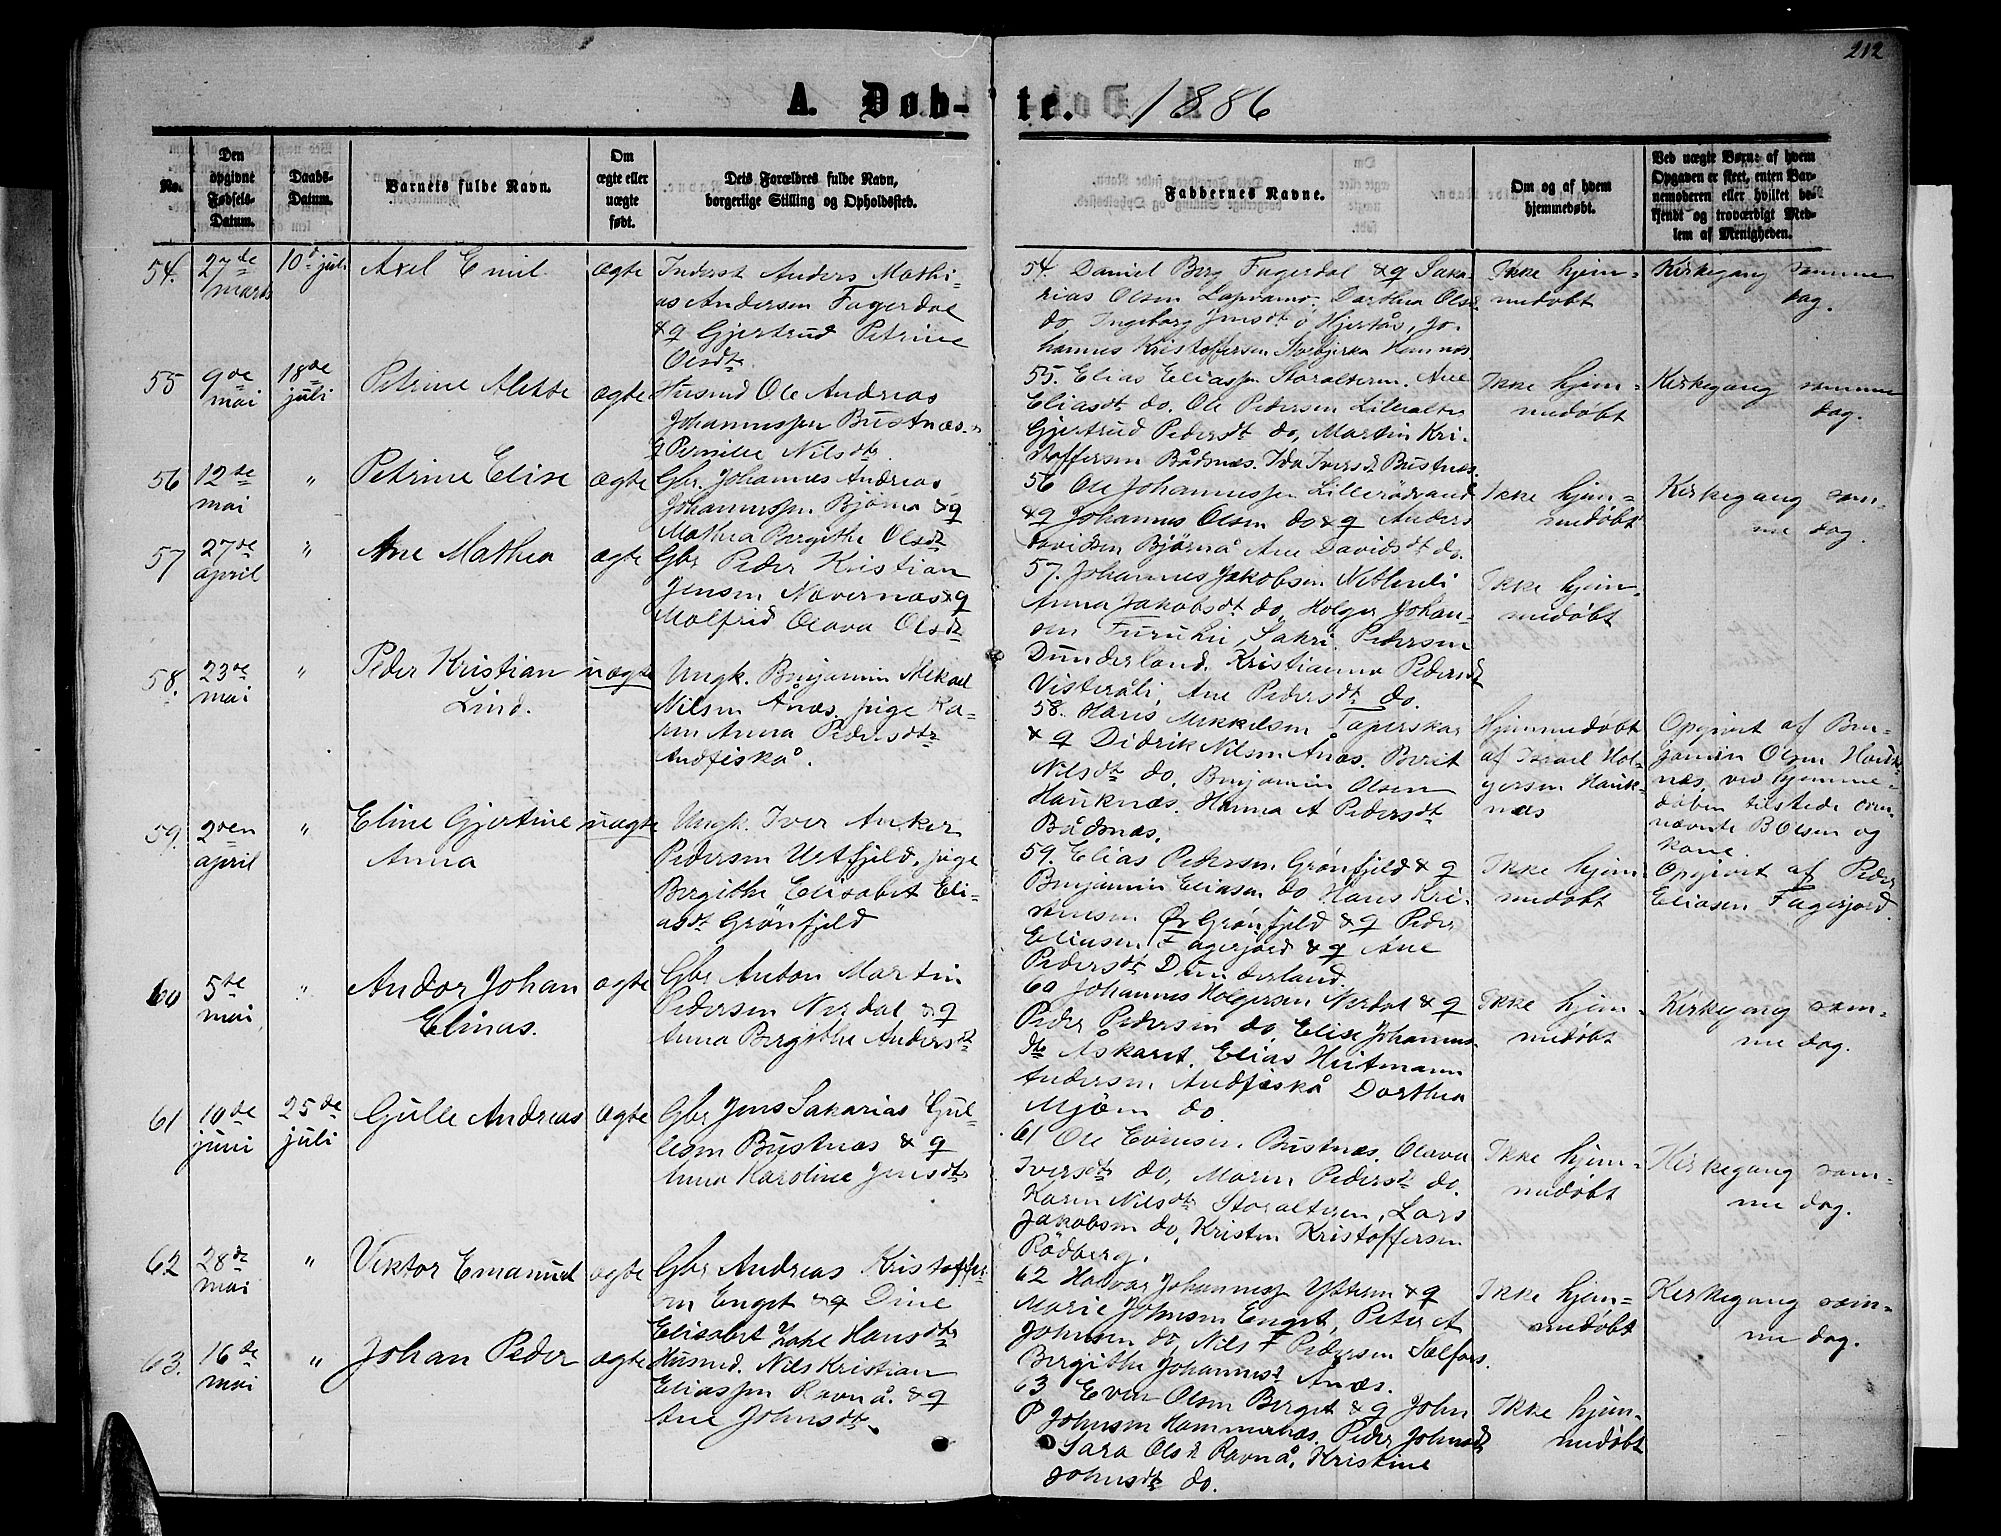 212
A. Døb-te. 1886
No.
Den opgivne Fødsels-Datum.
Daabs-Datum.
Barnets fulde Navn.
Om ægte eller uægte født.
Dets Forældres fulde Navn, borgerlige Stilling og Opholdssted.
Faddernes Navne.
Om og af hvem hjemmedøbt.
Ved uægte Børn: af hvem Opgaven er skeet, enten Barnemoderen eller hvilket bekjendt og troværdigt Medlem af Menigheden.
54. 27de marts 10d juli Axel Emil ægte
Inderst Anders Mathi-
as Andersen Fagerdal
& q Gjertrud Petrine
Olsdtr
54. Daniel Berg Fagerdal & q Saka-
rias Olsen Dorthea Olsd
do, Ingeborg Jensdt Hjertås, Jo-
hannes Kristoffersen
Ikke hjem-
medøbt
Kirkegang samme
dag.
55 9de mai 18de juli Petrine Alette ægte
Husmd Ole Andreas
Johannessen Bustnæs
& Pernille Nilsdtr
55. Elias Eliassen Storalteren. Ane
Eliasdt do. Ole Pedersen Lillealter
Gjertrud Pedersdt do, Martin Kri-
stoffersen Båsnæs. Ida Iversd Bustnæs.
Ikke hjem-
medøbt
Kirkegang samme
dag.
56 12te mai " Petrine Elise ægte
Gbr. Johannes Andreas
Johannessen Bjørnå & q
Mathea Bergithe Olsdt
56 Ole Johannessen Lillerødvand
& q Johannes Olsen do & q Anders
Davidsen Bjørnå Ane Davidsdt do.
Ikke hjem-
medøbt
Kirkegang sam-
me dag.
57 27de april " Ane Mathea ægte
Gbr Peder Kristian
Jensen Nævernæs & q
Malfrid Olava Olsdt
57. Johannes Jakobsen
Anna Jakobsdt do, Holger Johan-
sen Furuhei, Sakri. Pedersen
Dunderland. Kristianna Pedersdt
Visteråli, Ane Pedersdt do.
Ikke hjem-
medøbt
58. 23de mai " Peder Kristian
Lind.
uægte
Ungk. Benjamin Mekael
Nilsen Ånæs, pige Ka-
ren Anna Pedersdtr
Andfiskå.
58. Hans Mikkelsen
& q Didrik Nilsen Ånæs. Berit
Nilsdt do, Benjamin Olsen
Hauknæs. Hanna A Pedersdt
Båsnæs.
Hjemmedøbt
af Israel Hol-
gersen Hauk-
næs
Opgivet af Ben-
jamin Olsen Hauk-
næs, ved hjemme-
døben tilstede om-
nævnte B Olsen og
kone
59. 2den april " Eline Gjertine
Anna
uægte
Ungk. Iver Anker
Pedersen Urtfjeld, pige
Bergithe Elisabet Eli-
asdt Grønfjeld
59. Elias Pedersen Grønfjeld & q
Benjamin Eliasen do Hans Kri-
stensen Øv Grønfjeld & q Peder
Eliasen Fagerjord & q Ane
Pedersdt Dunderland.
Ikke hjem
medøbt
Opgivet af Peder
Eliasen Fagerjord.
60 5te mai " Andor Johan
Elinas.
ægte
Gbr Anton Martin
Pedersen Nerdal & q
Anna Bergithe Andersdt
60 Johannes Holgersen Nerdal & q
Peder Pedersen do, Elise Johannes-
dtr Askaret. Elias Heitmann
Andersen Andfiskå Dorthea
Mjøen do
Ikke hjem-
medøbt
Kirkegang sam-
me dag.
61 10de juni 25de juli Gulle Andreas ægte
Gbr Jens Sakarias Gul-
lesen Bustnæs & q
Anna Karoline Jensdtr
61 Ole Evensen Bustnæs, Olava
Iversdt do, Maren Pedersdt do.
Karen Nilsdtr Storalteren, Lars
Jakobsen do, Kristen Kristoffersen
Rødberg.
Ikke hjem-
medøbt
Kirkegang sam-
me dag.
62 28de mai " Viktor Emanuel ægte
Gbr Andreas Kristoffer-
sen Enget & q Dine
Elisabet Hansdtr
62 Halvor Johannessen Ytteren & q
Marie Johnsen Enget, Peter A
Johnsen do, Nils F Pedersen Selfors.
Bergithe Johannesd Ånæs.
Ikke hjem-
medøbt
Kirkegang sam-
me dag.
63. 16de mai " Johan Peder ægte
Husmd. Nils Kristian
Eliassen Ravnå. & q
Ane Johnsdtr
63 Even Olsen Berget & q John
P Johnsen Hammernæs. Peder Johnsdt
Sara Olsd Ravnå, Kristine
Johnsdt do.
Ikke hjem-
medøbt